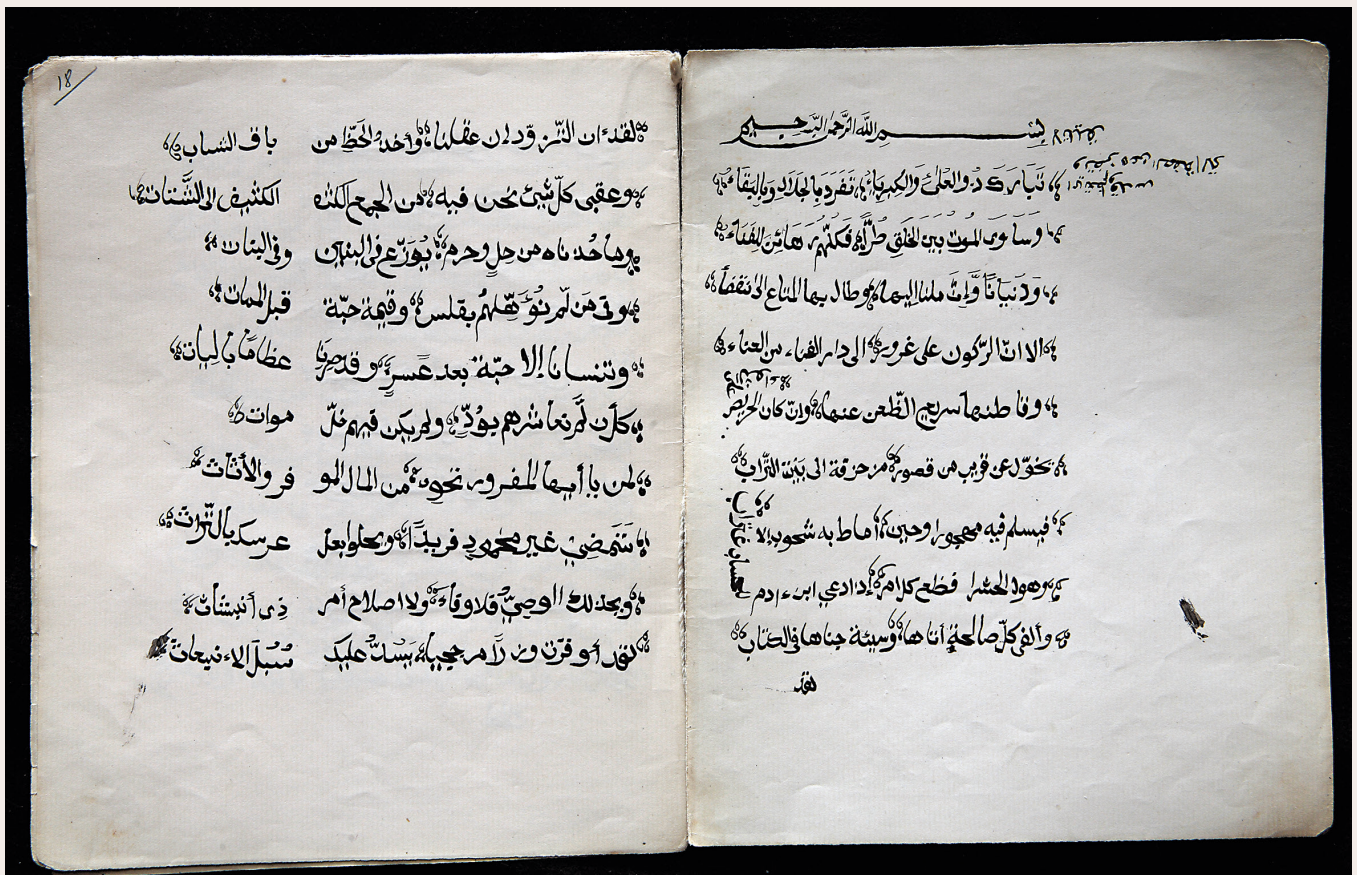 بسم الله الرحمن الرحيم
تبارك ذو العلى والكبرياء تفرد بالجلال وبالبقاء
وساوى الموت بين الخلق طرا فكلهم رهائن للفناء
ودنيانا وإن ملنا إليها وطال بها المتاع إلى انقضاء
ألا ان الركون على غرور إلى دار الفناء من العناء
وقاطنها سريع الظعن عنها وان كان الحريص
تحول عن قريب من قصور مزخرفة الى بيت التراب
فيسلم فيه مهجورا وحيدا أحاط به شحوب الا غتراب
وهول الحشر افظع كل امر إذا دعي ابن ءادم للحساب
وألفى كل صالحة أتاها وسيئة جناها في الكتاب
لقد
18
لقد ءان التزود إن عقلنا وأخذ الحظ من باق الشباب
وعقبى كل شيئ نحن فيه من الجمع الكثيف الى الشتات
وما حزناه من حل وحرم يوزع في البنين وفي البنات
وفى من لم نؤهلهم بفلس وقيمة حبة قبل الممات
وتنسانا الاحبة بعد عشر وقد صرنا عظاما باليات
كأن لم نعاشرهم بود ولم يكن فيهم خل موات
لمن يا أيها المغرور تحوى من المال المو فر والأثاث
ستمضى غير محمود فريدا ويخلو بعل عرسك بالتراث
ويخذلك الوصي فلا وفاء ولا اصلاح أمر ذى أنبثاث
لقد أوفرت وزرا مرجحنا يسد عليك سبل الانبعاث